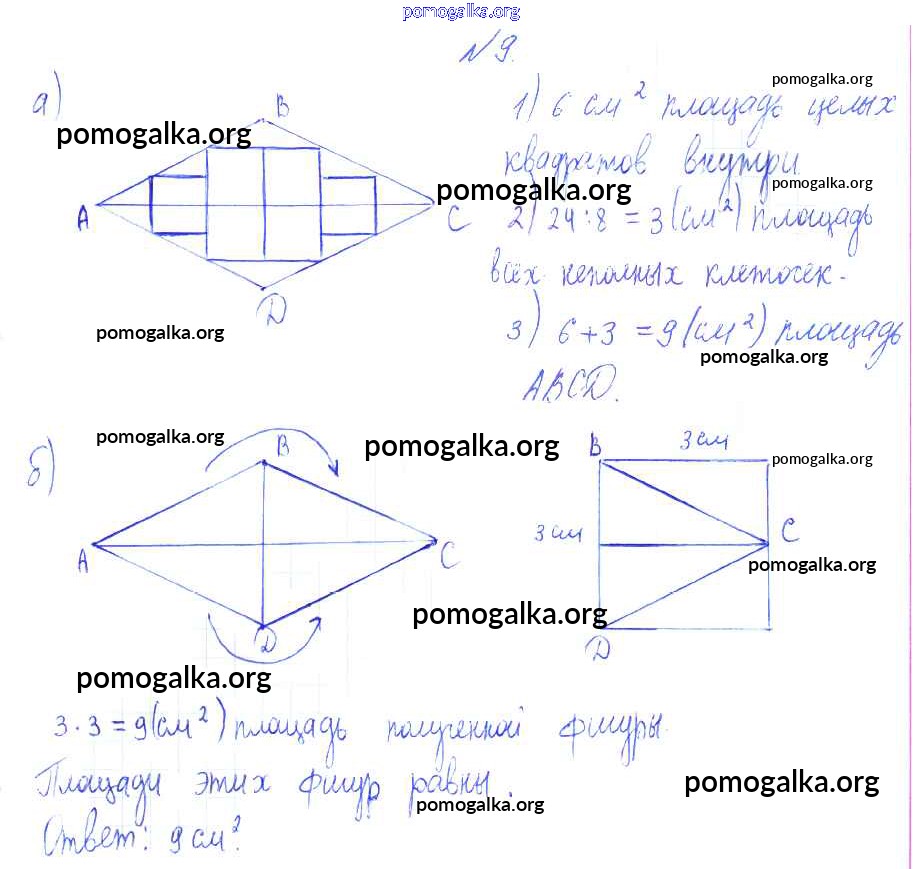 pomogalka.org
N 9.
а)
pomogalka.org
1) 6 см² площадь целых
pomogalka.org
квадратов внутри.
B
A
C
D
pomogalka.org
pomogalka.org
2) 24 : 8 = 3 (см²) площадь
всех неполных клеточек.
3) 6 + 3 = 9 (см²) площадь
pomogalka.org
pomogalka.org
ABCD.
б)
pomogalka.org
pomogalka.org
pomogalka.org
B
A
C
D
B
3 см
3 см
C
D
pomogalka.org
pomogalka.org
pomogalka.org
3 · 3 = 9 (см²) площадь полученной фигуры.
Площади этих фигур равны.
pomogalka.org
pomogalka.org
Ответ: 9 см².